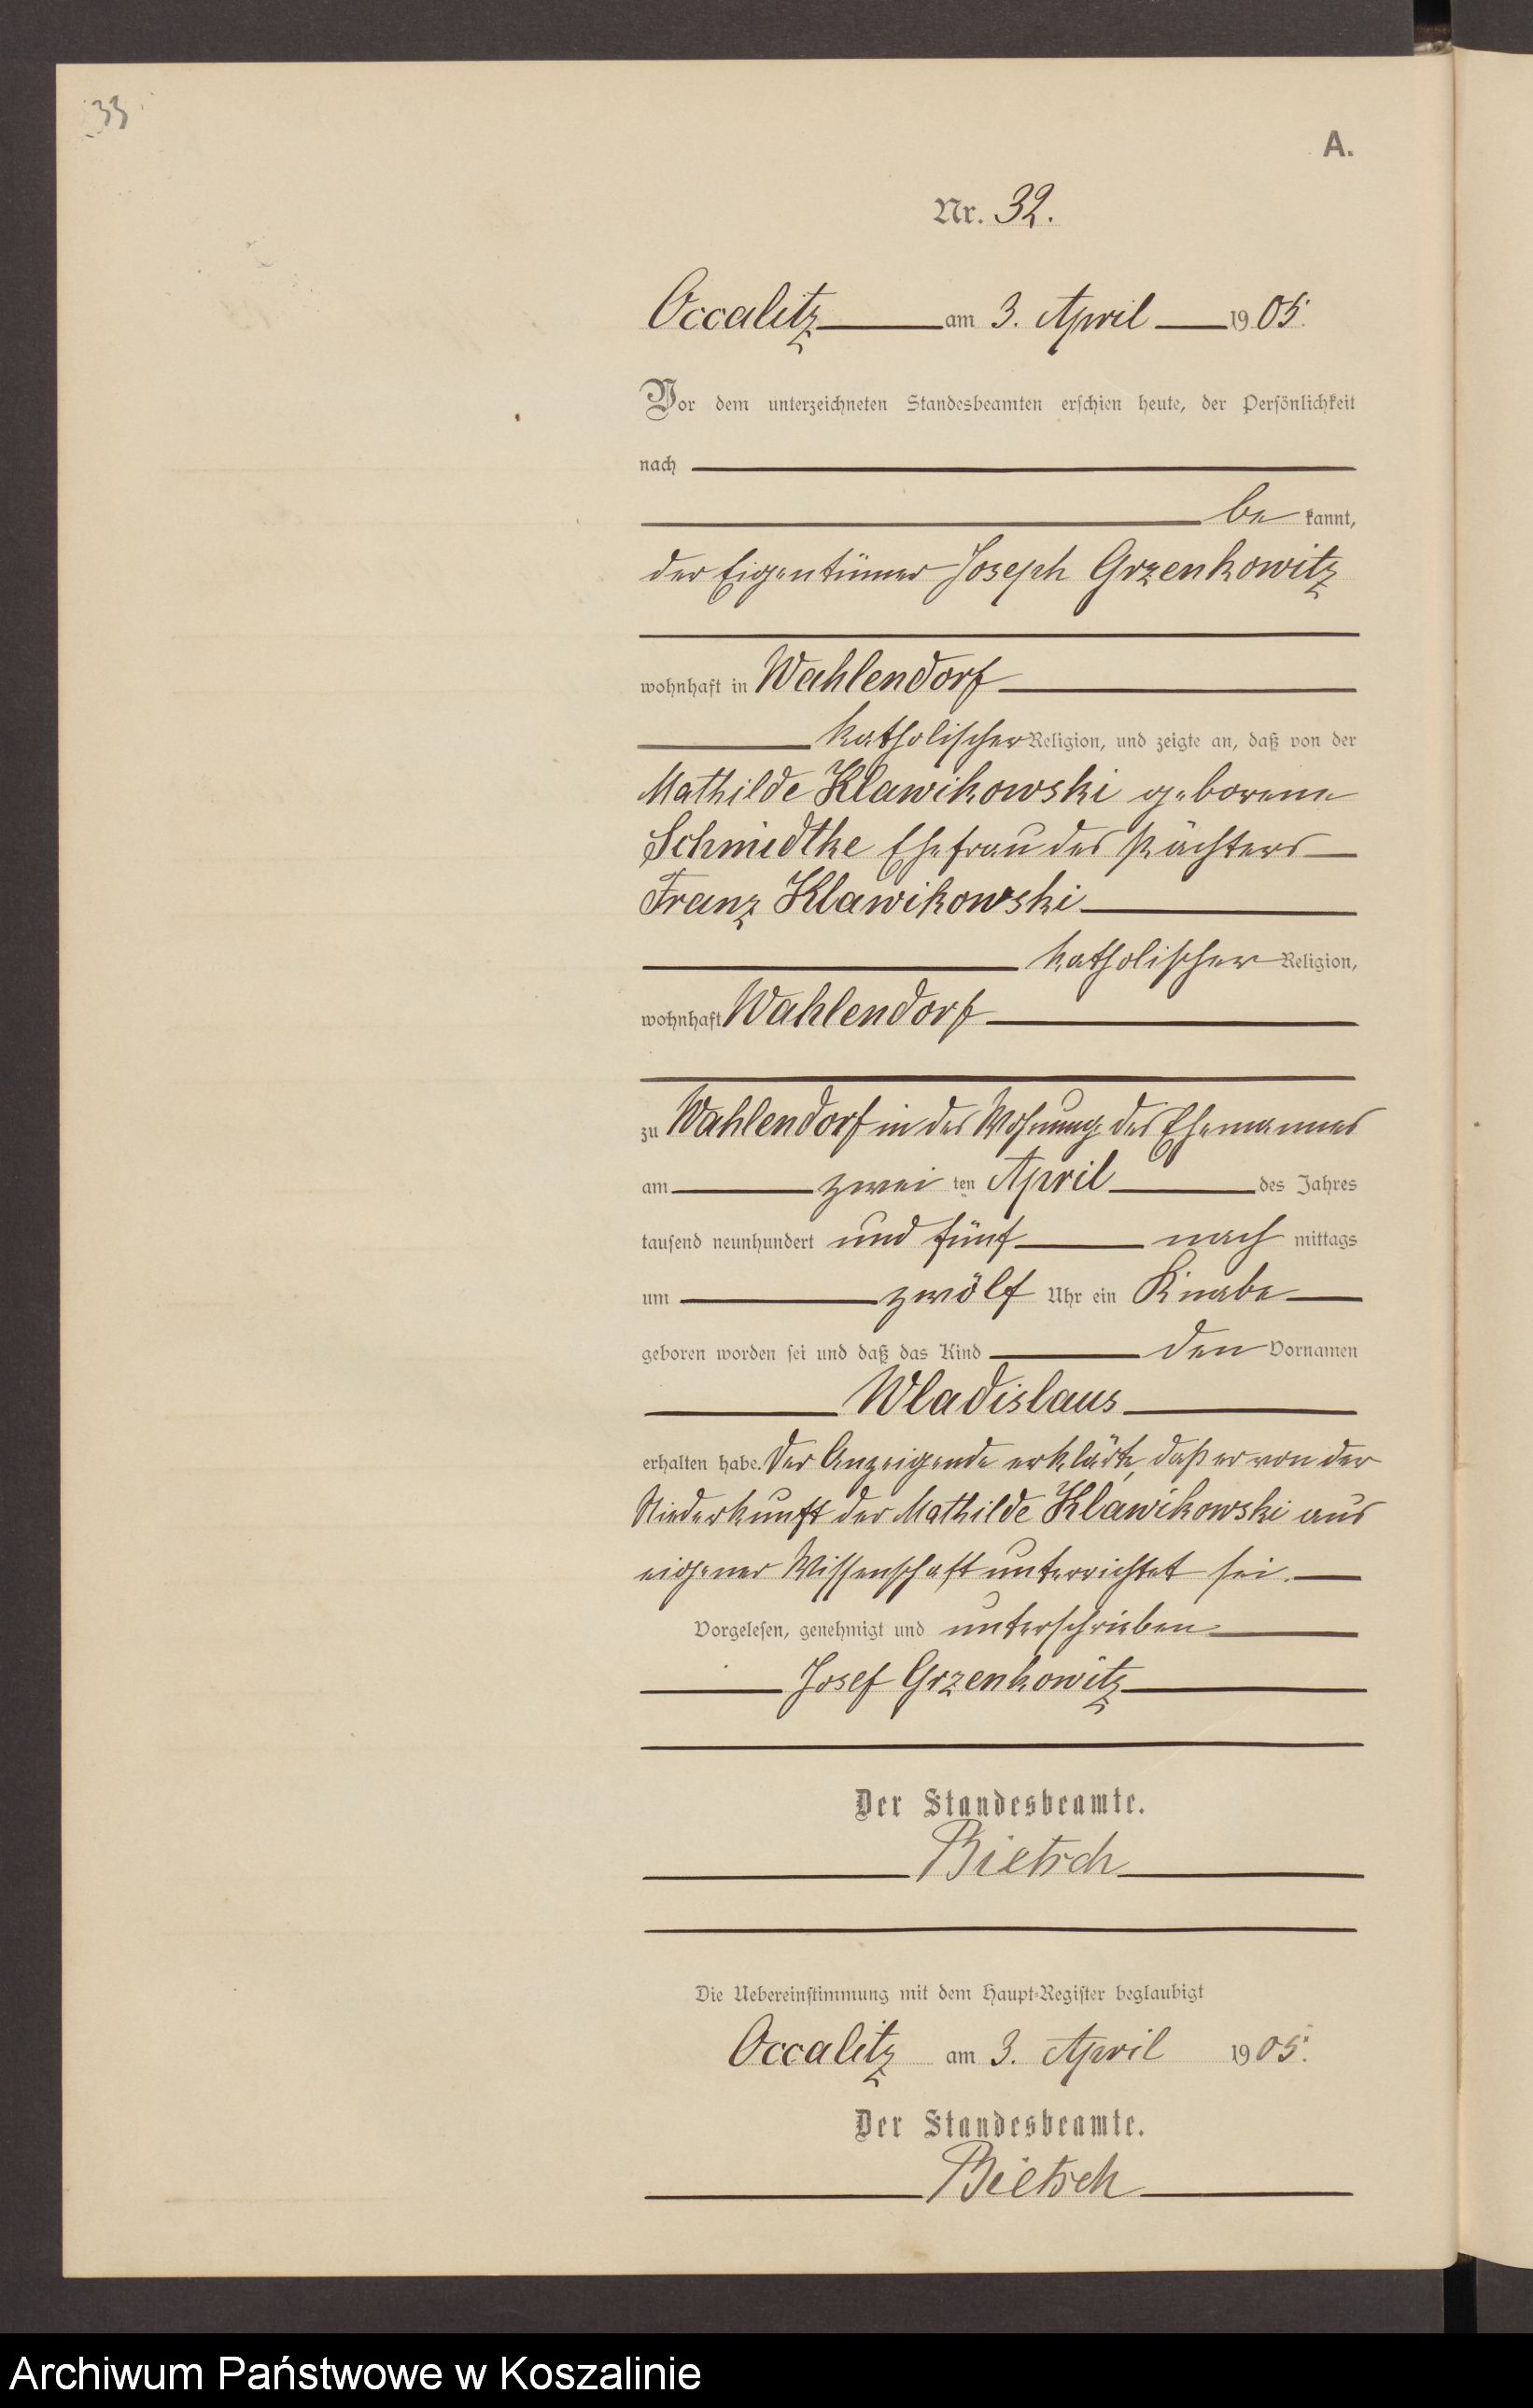 33
A.
Nr. 32.
Occalitz am 3. April 1905.
Vor dem unterzeichneten Standesbeamten erschien heute, der Persönlichkeit
nach
be kannt,
der Eigentümer Joseph Grzenkowitz
wohnhaft in Wahlendorf
katholischer Religion, und zeigte an, daß von der
Mathilde Klawikowski geborene
Schmidtke Ehefrau des Pächters
Franz Klawikowski
katholischer Religion,
wohnhaft Wahlendorf
zu Wahlendorf in der Wohnung des Ehemannes
am zwei ten April des Jahres
tausend neunhundert und fünf nach mittags
um zwölf Uhr ein Knabe
geboren worden sei und daß das Kind den Vornamen
Wladislaus
erhalten habe. Der Anzeigende erklärte, daß er von der
Niederkunft der Mathilde Klawikowski aus
eigener Wissenschaft unterrichtet sei.
Vorgelesen, genehmigt und unterschrieben
Josef Grzenkowitz
Der Standesbeamte.
Bietsch
Die Uebereinstimmung mit dem Haupt-Register beglaubigt
Occalitz am 3. April 1905.
Der Standesbeamte.
Bietsch
Archiwum Państwowe w Koszalinie